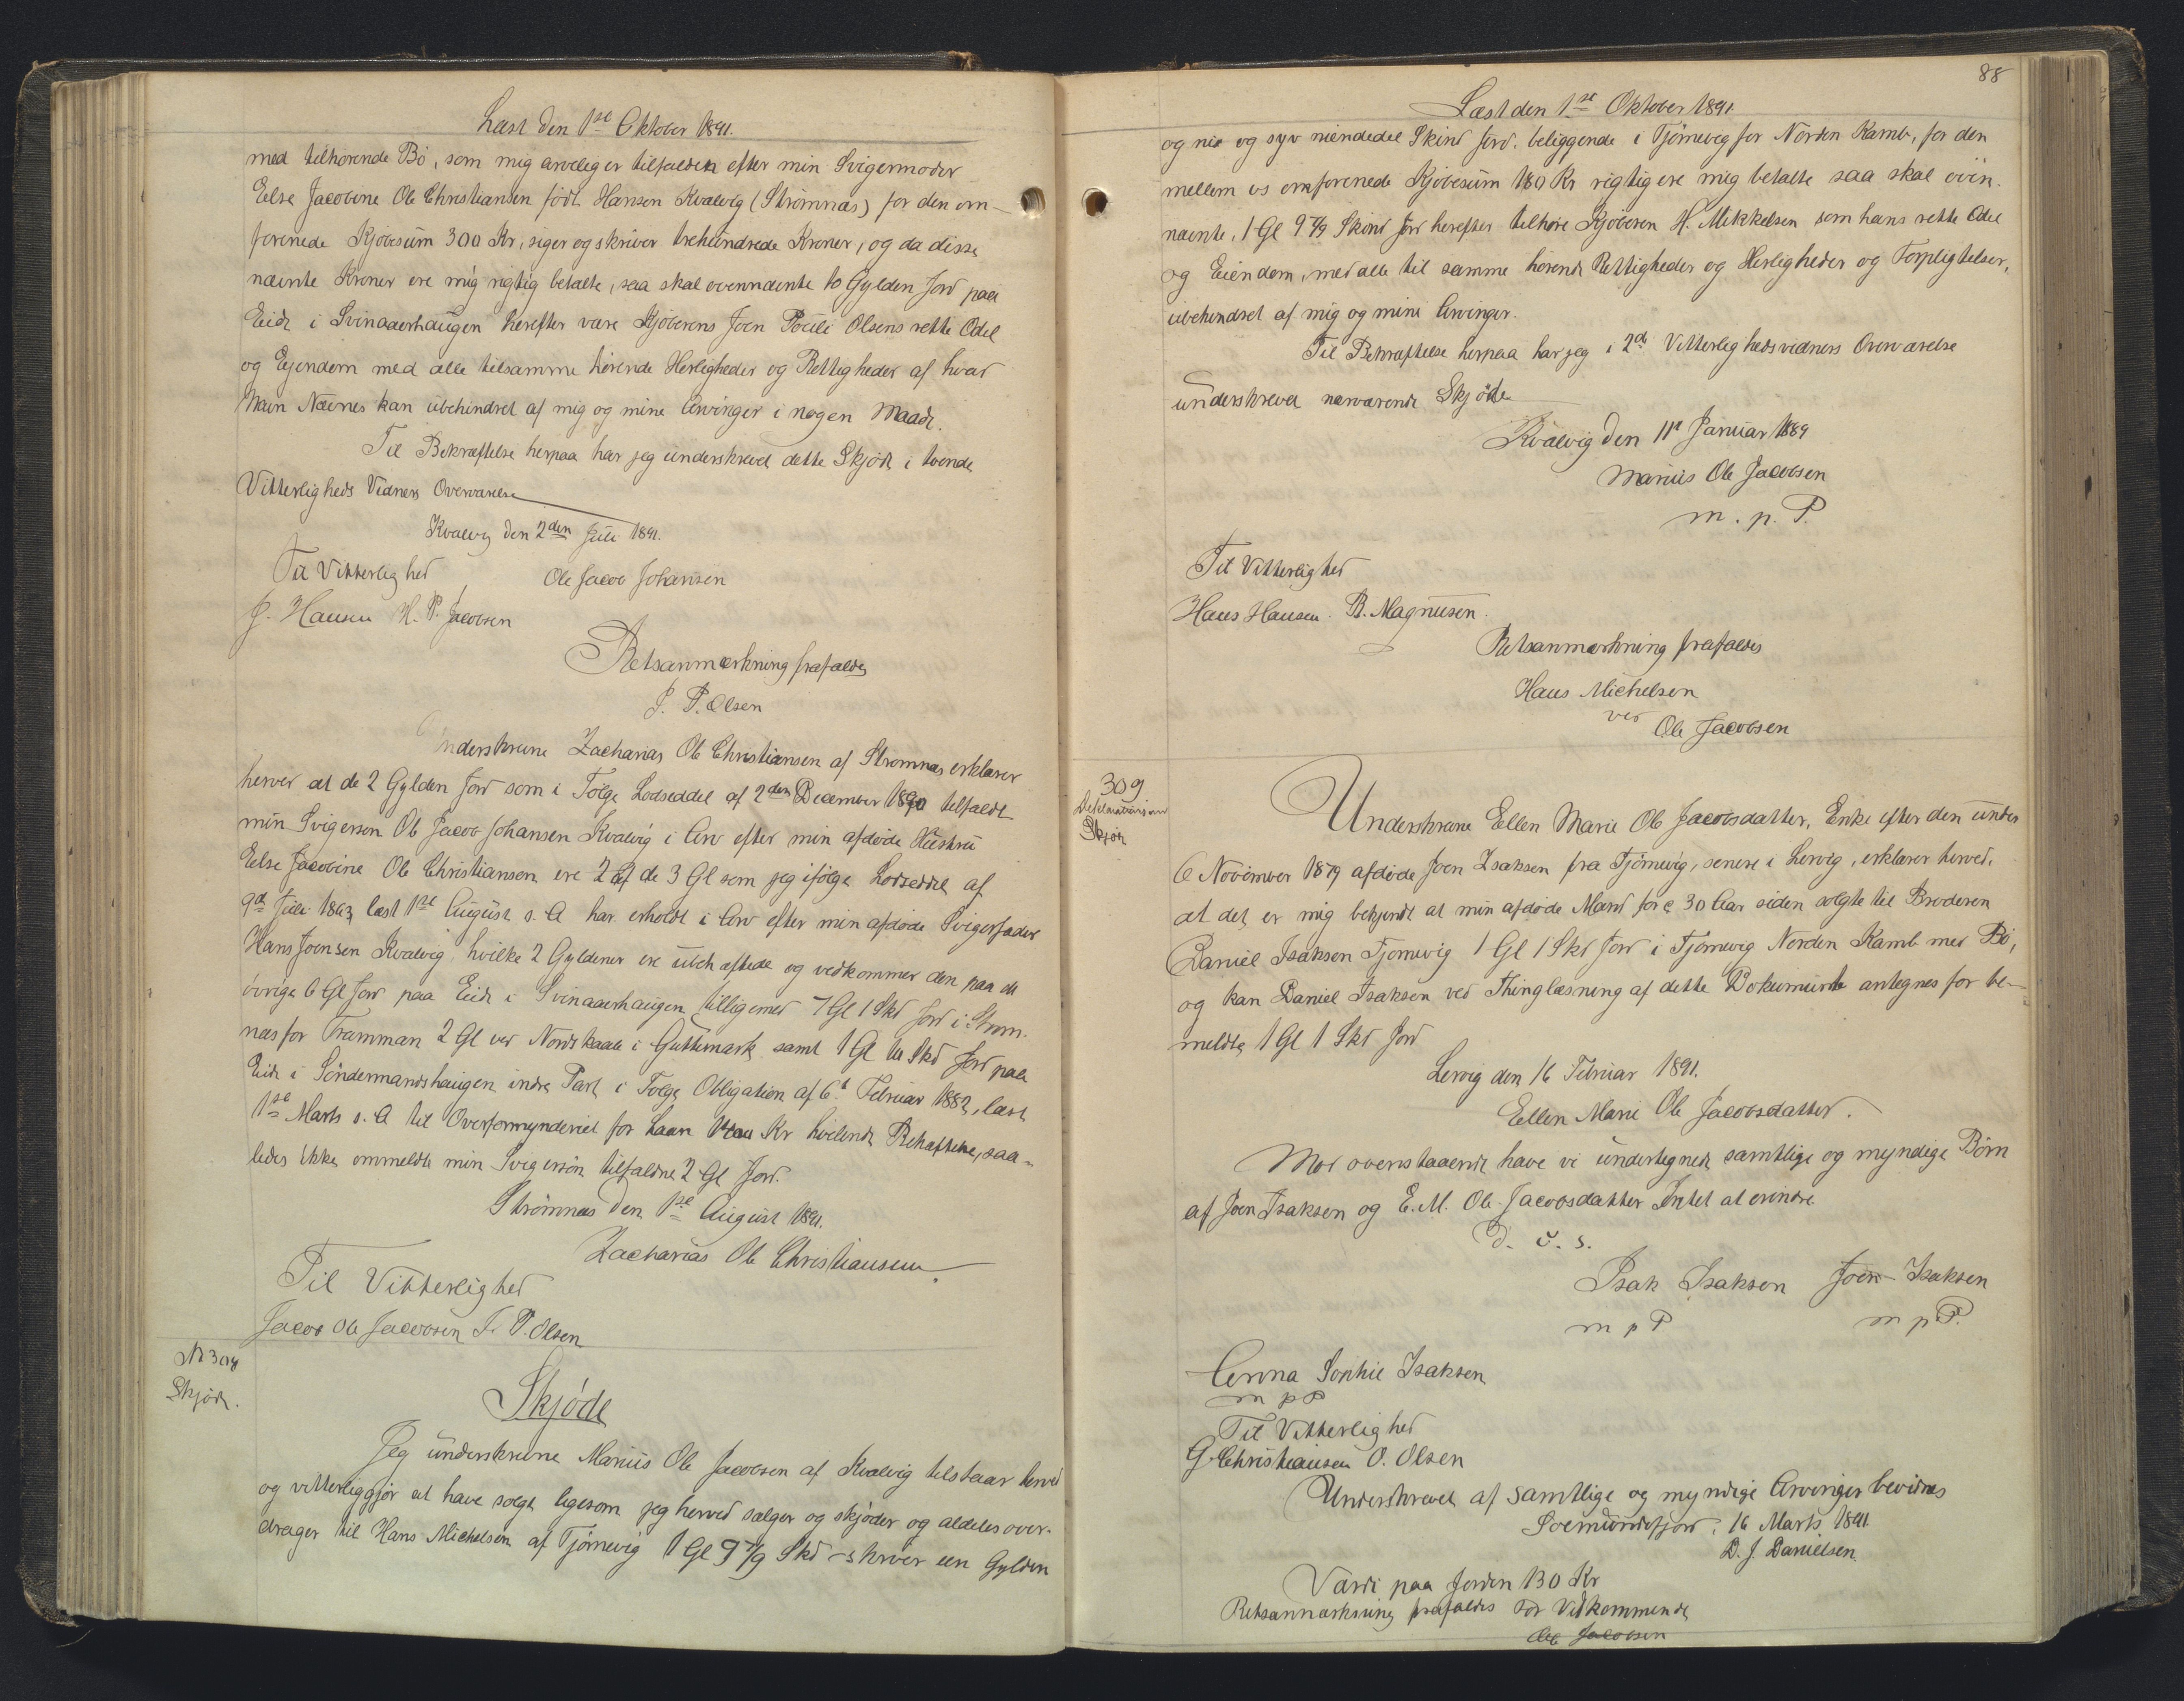 Læst den 1ste Oktober 1891.
med tilhörende Bö, som mig arvelig er tilfalden efter min Svigermoder
Eelse Jacobine Ole Christiansen födt Hansen Kvalvig (Strömnæs) for den om-
forenede Kjöbesum 300 Kr, siger og skriver trehundrede Kroner, og da disse
nævnte Kroner ere mig rigtig betalte, saa skal ovennævnte to Gylden Jord paa
Eide i Svinaaerhaugen herefter være Kjöberens Joen Pouli Olsens rette Odel
og Ejendom med alle tilsamme hörende Herligheder og Rettigheder af hvad
Navn Nævnes kan ubehindret af mig og mine Arvinger i nogen Maade.
Til Bekræftelse herpaa har jeg underskrevet dette Skjöde i tvende
Vitterligheds Vidners Overværelse
Kvalvig den 2den Juli 1891.
Til Vitterlighed Ole Jacob Johansen
J. Hansen H. P. Jacobsen
Retsanmærkning frafaldes
J. P. Olsen
Underskrevne Zacharias Ole Christiansen af Strömnæs erklærer
herved at de 2 Gylden Jord som i Fölge Lodseddel af 2den December 1890 tilfaldt
min Svigersön Ole Jacob Johansen Kvalvig i Arv efter min afdöde Hustru
Eelse Jacobine Ole Christiansen ere 2 af de 3 Gl som jeg ifölge Lodseddel af
9de Juli 1863 læst 1ste August s. A har erholdt i Arv efter min afdöde Svigerfader
Hans Joensen Kvalvig, hvilke 2 Gyldener ere ubehæftede og vedkommer den paa de
övrige 6 Gl Jord paa Eide i Svinaaerhaugen tilligemed 7 Gl 1 Skd Jord i Ström-
næs for Tramman 2 Gl ved Nordskaale i Guttemark samt 1 Gl Skd Jord paa
Eide i Söndermandshaugen indre Part i Fölge Obligation af 6t Februar 1882, læst
1ste Marts s. A til Overformynderiet for Laan Kr hvilende Behæftelse, saa-
ledes ikke ommeldte min Svigersön tilfaldne 2 Gl Jord.
Strömnæs den 1ste August 1891.
Zacharias Ole Christiansen
Til Vitterlighed
Jacob Ole Jacobsen J. P. Olsen
N 308
Skjöde.
Skjöde
Jeg underskrevne Marius Ole Jacobsen af Kvalvig tilstaar herved
og vitterliggjör at have solgt ligesom jeg herved sælger og skjöder og aldeles over-
drager til Hans Michelsen af Tjörnevig 1 Gl 9 7/9 Skd - skriver een Gylden
88
Læst den 1ste Oktober 1891.
og nie og syv niendedel Skind Jord. beliggende i Tjörnevig for Norden Kamb, for den
mellem os omforenede Kjöbesum 180 Kr rigtig ere mig betalte saa skal oven-
nævnte, 1 Gl 9 7/9 Skind Jord herefter tilhöre Kjöberen H. Mikkelsen som hans rette Odel
og Eiendom, med alle til samme hörende Rettigheder og Herligheder og Forpligtelser,
ubehindret af mig og mine Arvinger.
Til Bekræftelse herpaa har jeg i 2de Vitterlighedsvidners Overværelse
underskrevet nærværende Skjöde
Kvalvig den 11te Januar 1889
Marius Ole Jacobsen
m. p. P.
Til Vitterlighed
Hans Hansen. B. Magnusen.
Retsanmærkning frafaldes
Hans Michelsen
ved
Ole Jacobsen
309
Deklaration om
Skjöde
Underskrevne Ellen Marie Ole Jacobsdatter, Enke efter den under
6 November 1879 afdöde Joen Isaksen fra Tjörnevig, senere i Lervig, erklærer herved,
at det er mig bekjendt at min afdöde Mand for c 30 Aar siden solgte til Broderen
Daniel Isaksen Tjörnevig 1 Gl 1 Skd Jord i Tjörnevig Norden Kamb med Bö,
og kan Daniel Isaksen ved Thinglæsning af dette Dokument antegnes for be-
meldte 1 Gl 1 Skd Jord
Lervig den 16 Februar 1891.
Ellen Marie Ole Jacobsdatter.
Mod ovenstaaende have vi undertegnede samtlige og myndige Börn
af Joen Isaksen og E. M. Ole Jacobsdatter Intet at erindre
D. u. s.
Isak Isaksen Joen Isaksen
m p P m p P.
Anna Sophie Isaksen
m p P
Til Vitterlighed
G. Christiansen O. Olsen
Underskrevet af samtlige og myndige Arvinger bevidnes
Sörmundefjord, 16 Marts 1891.
D. J. Danielsen.
Værdi paa Jorden 130 Kr
Retsanmærkning frafaldes for Vedkommende
Ole Jacobsen